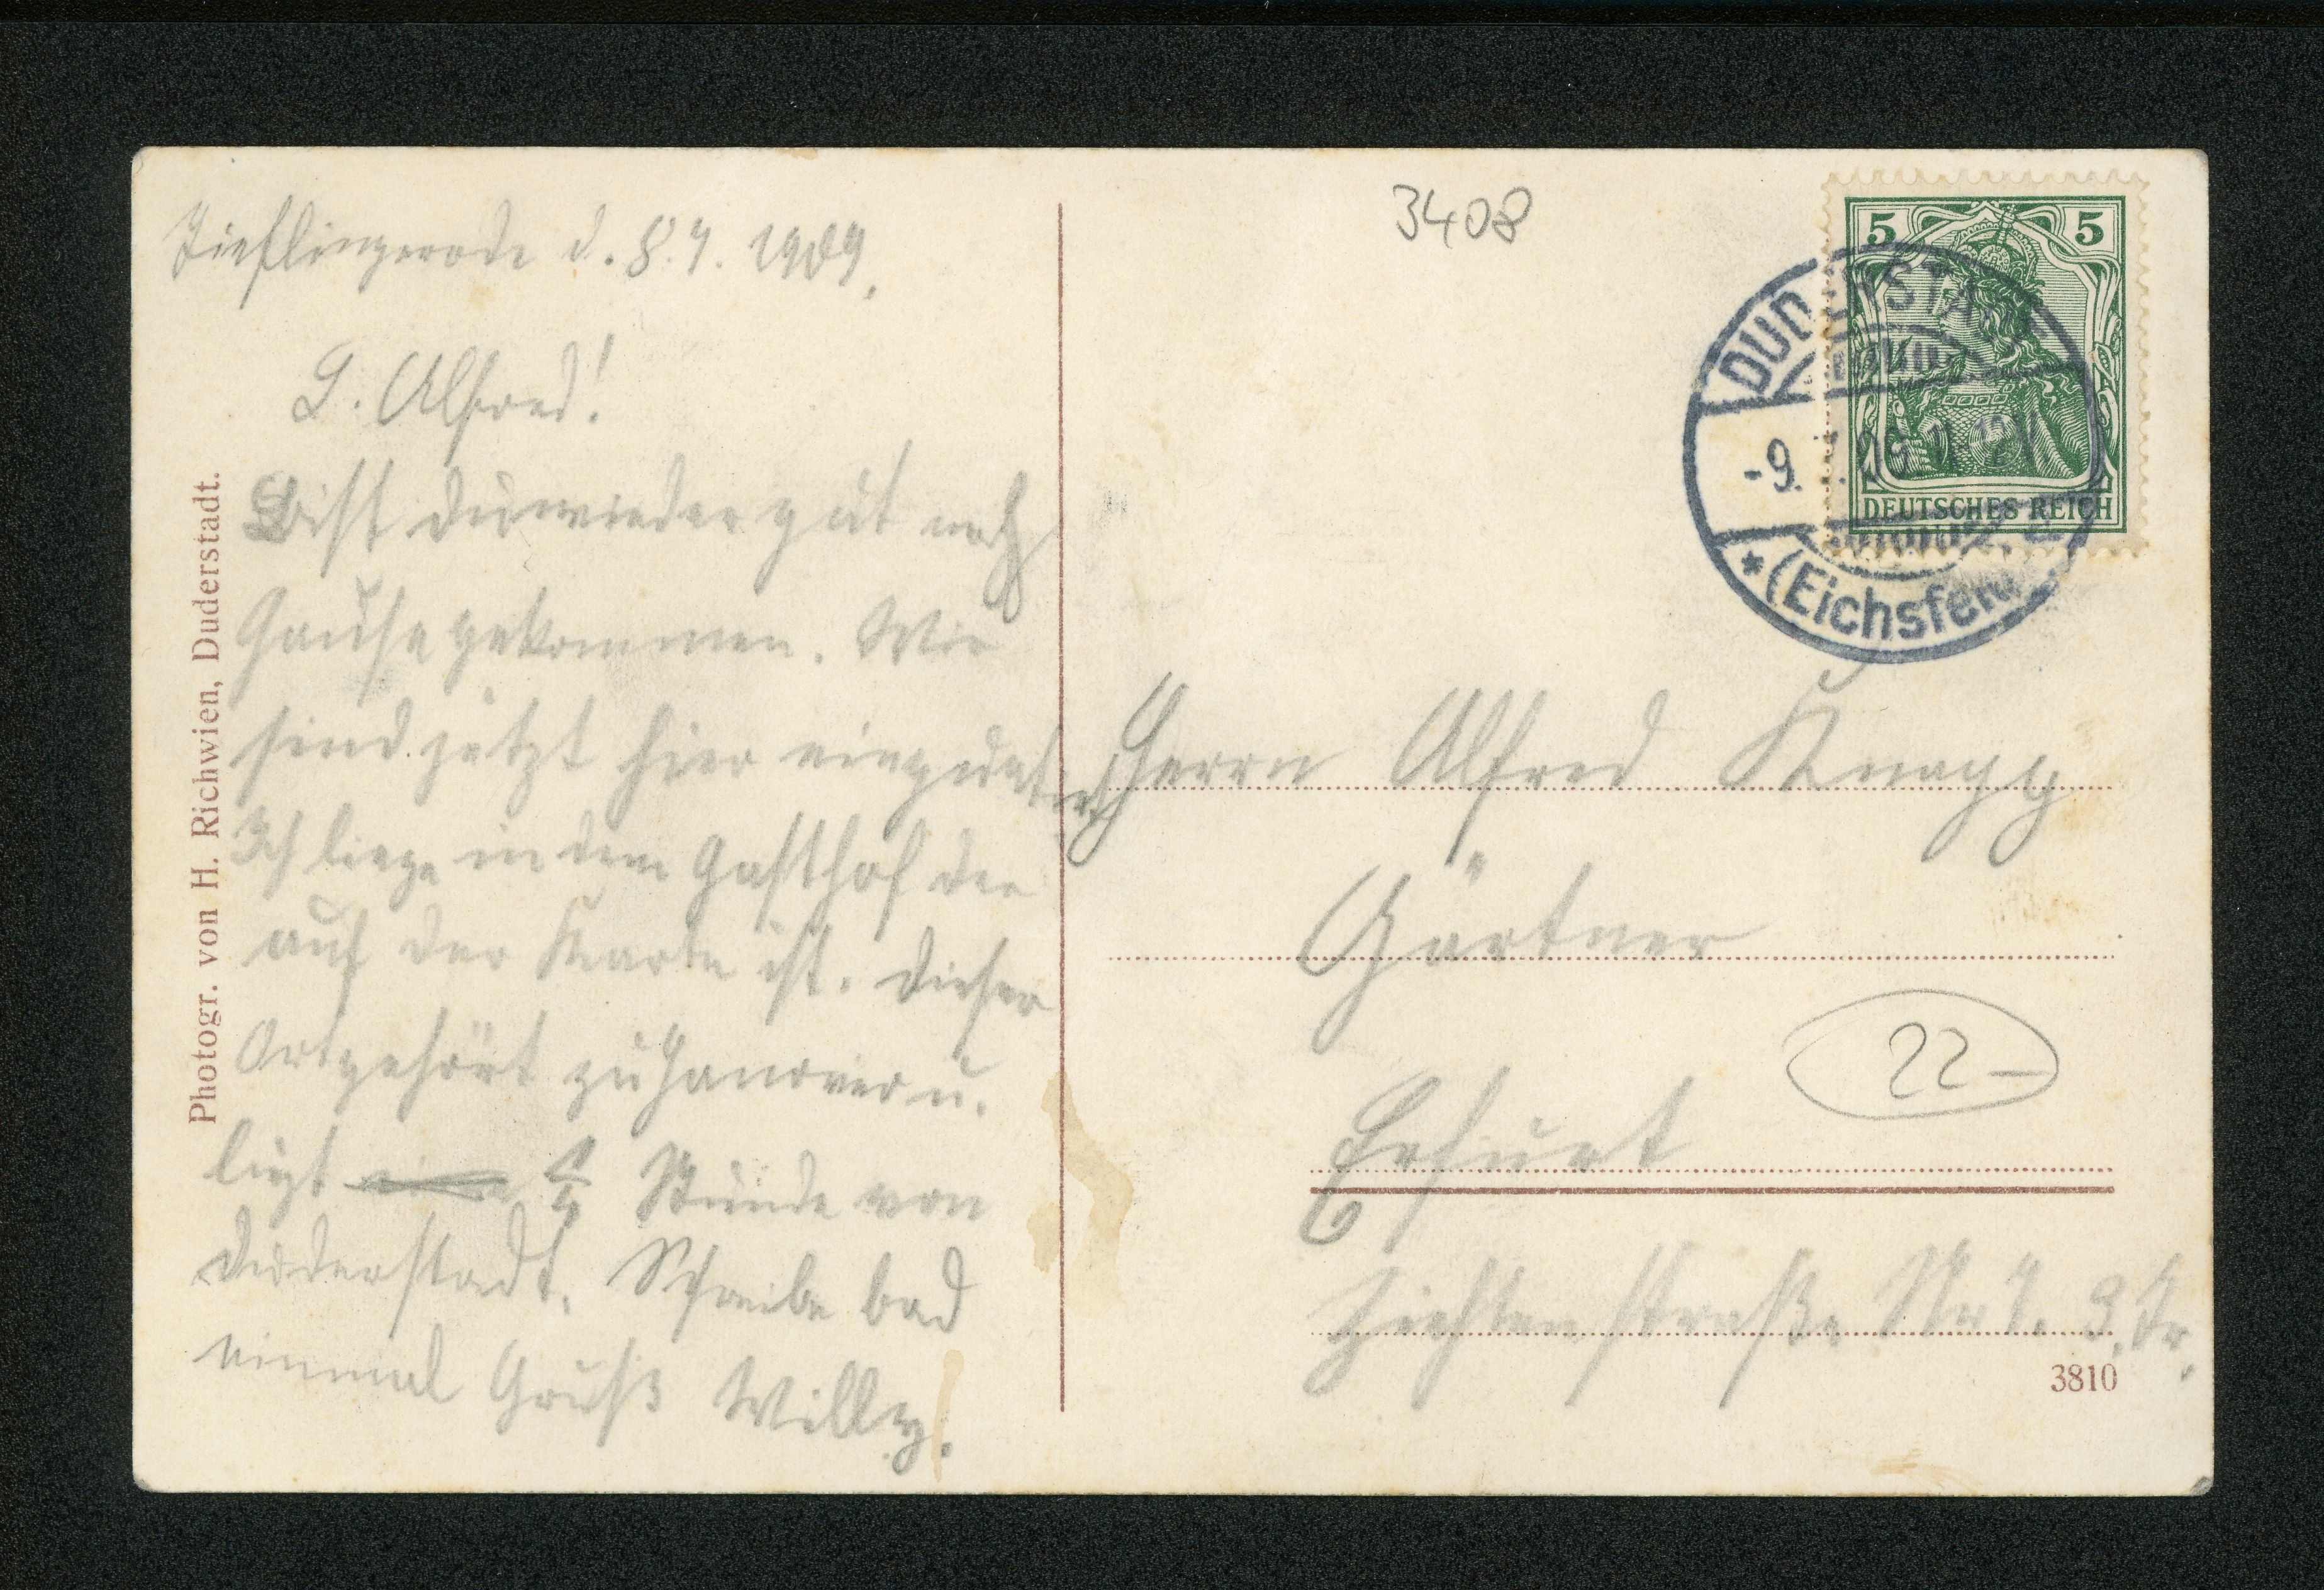 Tieflingerode d. 8.7.1909.
L. Alfred!
Bist du wieder gut nach
Hause gekommen. Wir
sind jetzt hier einquatiert
Ich liege in dem Gasthof der
auf der Karte ist. Dieser
Ort gehört zu Hanover u.
liegt Stunde von
Duderstadt. Schreibe bad
einmal Gruß Willy.
Photogr. von H. Richwien, Duderstadt.
3408
5 5
DEUTSCHES REICH
DUDERSTADT
-9.7.09. 11-12V
*(Eichsfeld)
Herrn Alfred Knapp
Gärtner
Erfurt
22-
Ziethenstraße Nr 7. 3. Tr.
3810